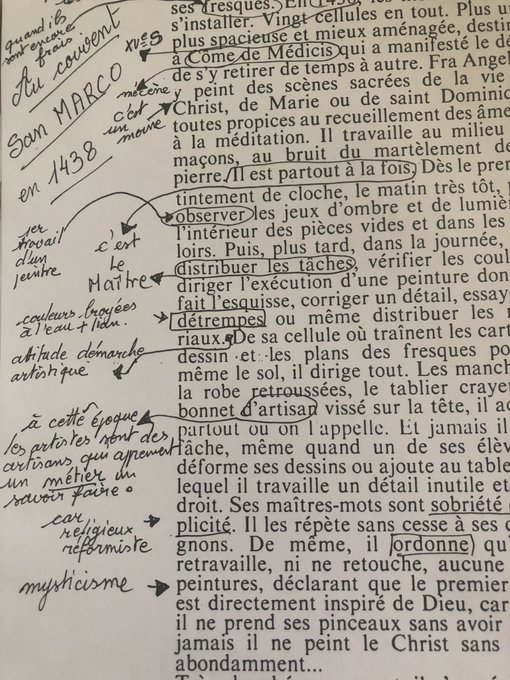 quand ils
sont encore
frais.
Au couvent
San MARCO
en 1438
XVe S
mécène
c'est
un
moine
1er
travail
d'un
peintre
c'est
le
Maître
couleurs broyées
à l'eau + lian.
attitude démarche
artistique
à cette époque
les artistes sont des
artisans qui apprennent
un métier un
savoir faire.
car
religieux
réformiste
mysticisme
ses fresques. En 1438, les
s'installer. Vingt cellules en tout. Plus u
plus spacieuse et mieux aménagée, desti
à Côme de Médicis qui a manifesté le dé
de s'y retirer de temps à autre. Fra Angel
y peint des scènes sacrées de la vie
Christ, de Marie ou de saint Dominic
toutes propices au recueillement des âme
à la méditation. Il travaille au milieu
maçons, au bruit du martèlement de
pierre. Il est partout à la fois. Dès le prem
tintement de cloche, le matin très tôt,
observer les jeux d'ombre et de lumiè
l'intérieur des pièces vides et dans les
loirs. Puis, plus tard, dans la journée,
distribuer les tâches, vérifier les coul
diriger l'exécution d'une peinture don
fait l'esquisse, corriger un détail, essaye
détrempes ou même distribuer les
riaux. De sa cellule où traînent les cart
dessin et les plans des fresques po
même le sol, il dirige tout. Les manch
la robe retroussées, le tablier craye
bonnet d'artisan vissé sur la tête, il ac
partout où on l'appelle. Et jamais il
fâche, même quand un de ses élèv
déforme ses dessins ou ajoute au table
lequel il travaille un détail inutile et
droit. Ses maîtres-mots sont sobriété
plicité. Il les répète sans cesse à ses c
gnons. De même, il ordonne qu'
retravaille, ni ne retouche, aucune
peintures, déclarant que le premier
est directement inspiré de Dieu, car
il ne prend ses pinceaux sans avoir
jamais il ne peint le Christ sans
abondamment...